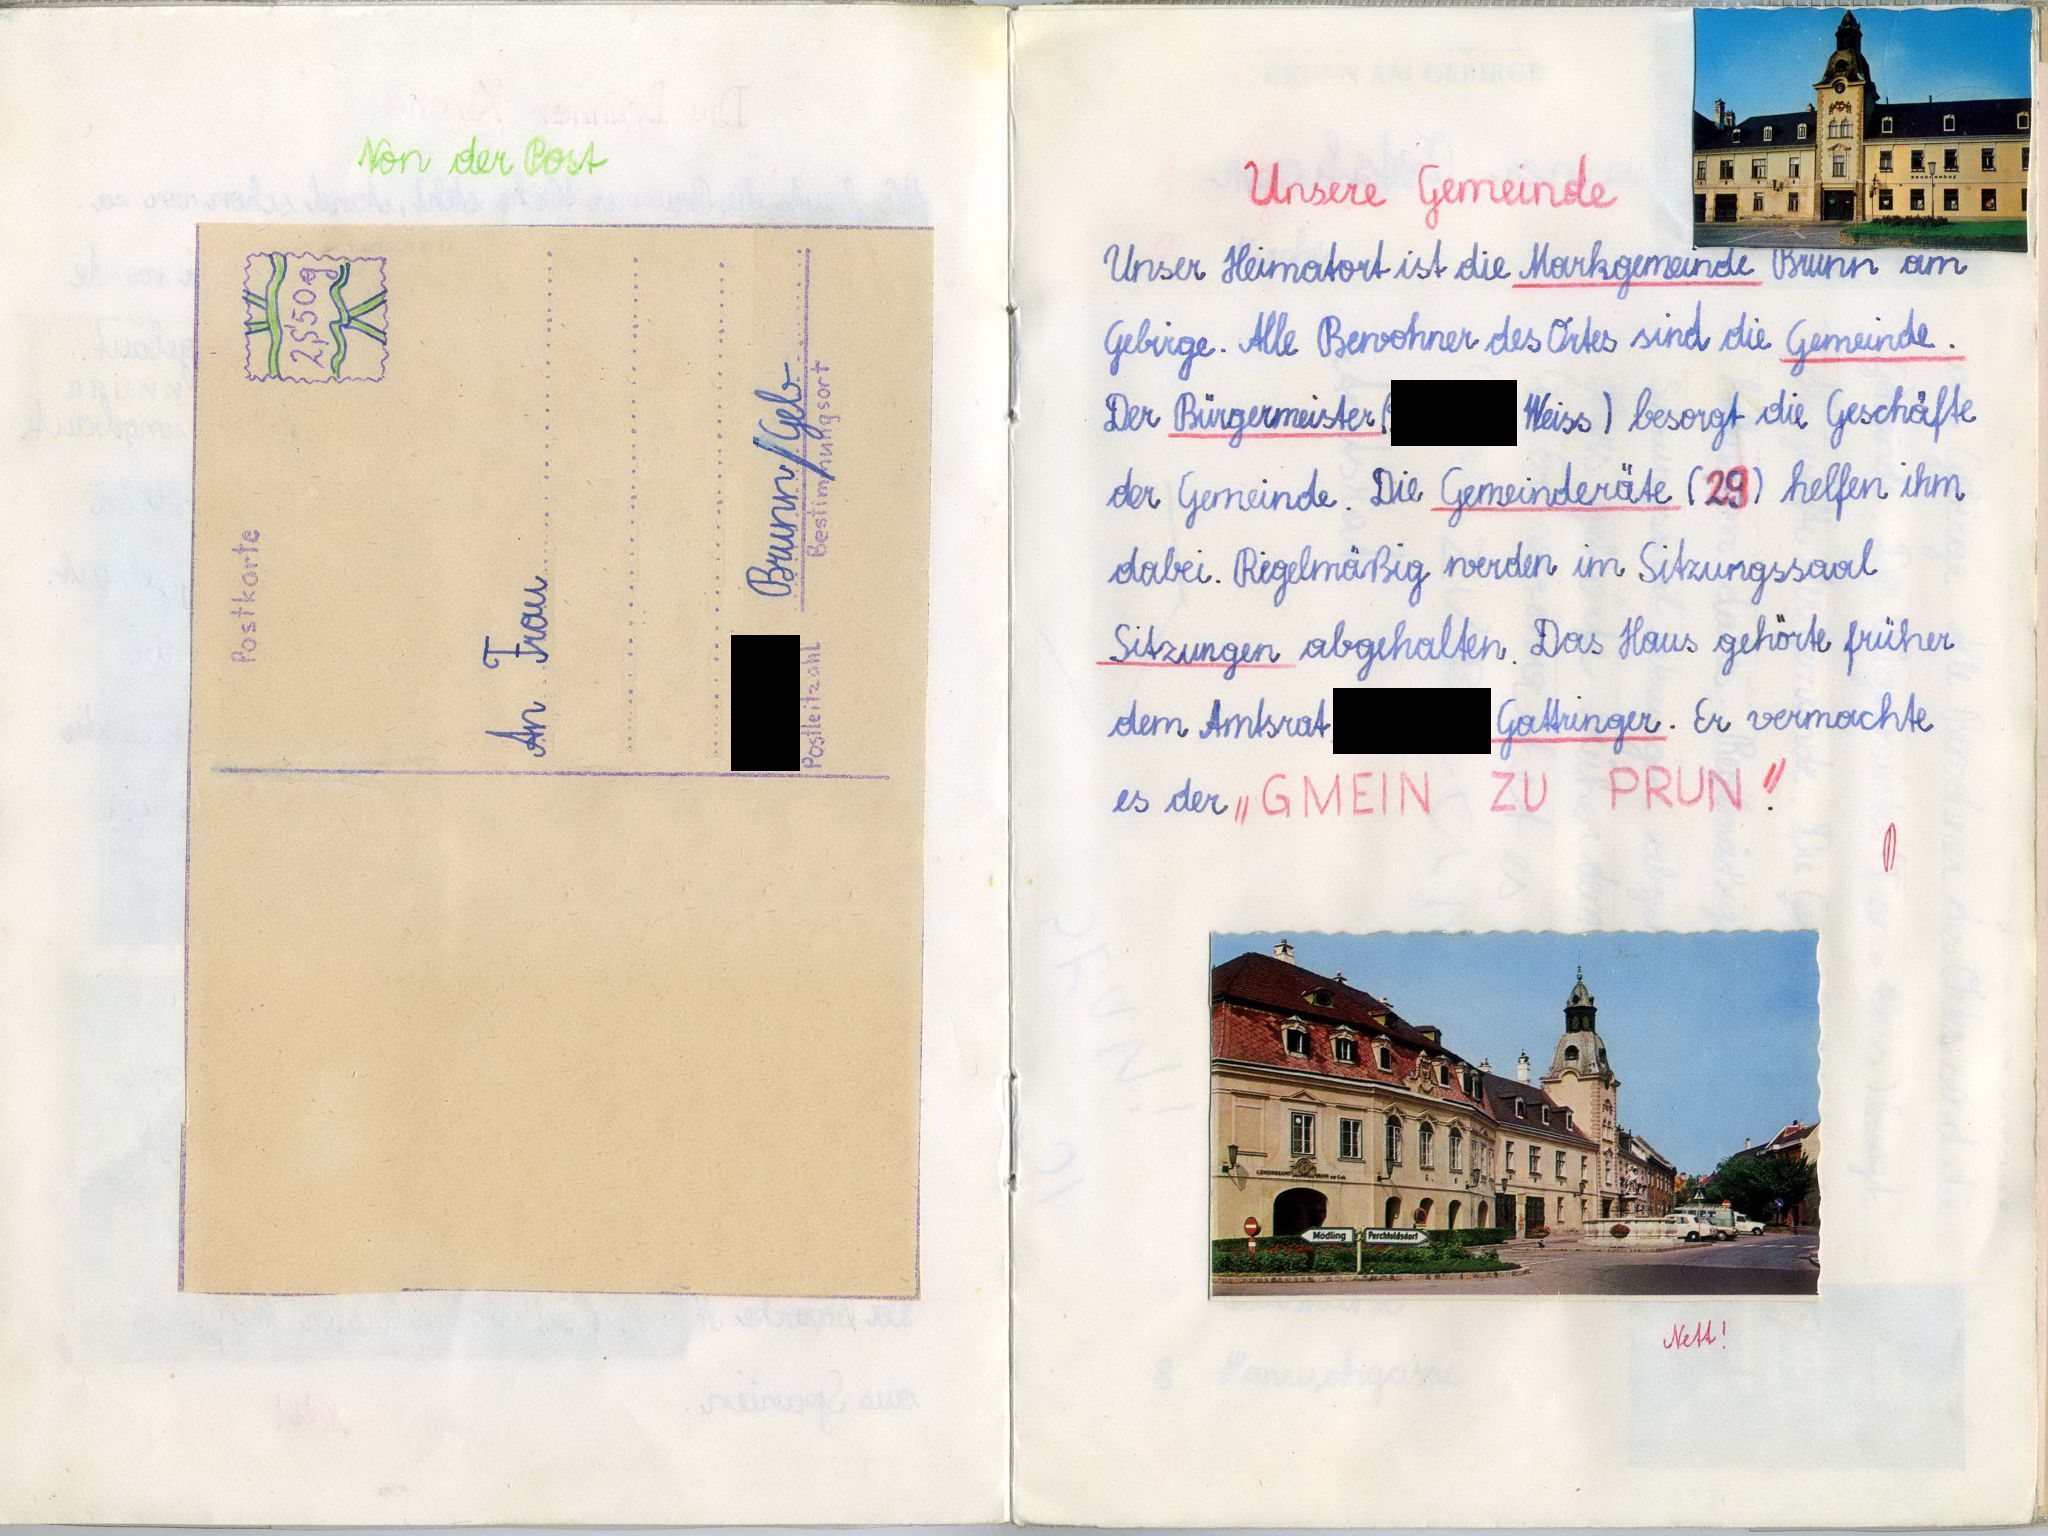 Von der Post
Postkarte
2,S50g
An Frau
Brunn/Geb.
Postleitzahl Bestimmungsort
Unsere Gemeinde
Unser Heimatort ist die Markgemeinde Brunn am
Gebirge. Alle Bewohner des Ortes sind die Gemeinde.
Der Bürgermeister ( Weiss) besorgt die Geschäfte
der Gemeinde. Die Gemeinderäte (29) helfen ihm
dabei. Regelmäßig werden im Sitzungssaal
Sitzungen abgehalten. Das Haus gehörte früher
dem Amtsrat Gattringer. Er vermachte
es der „GMEIN ZU PRUN“.
Mödling Perchtoldsdorf
Nett!